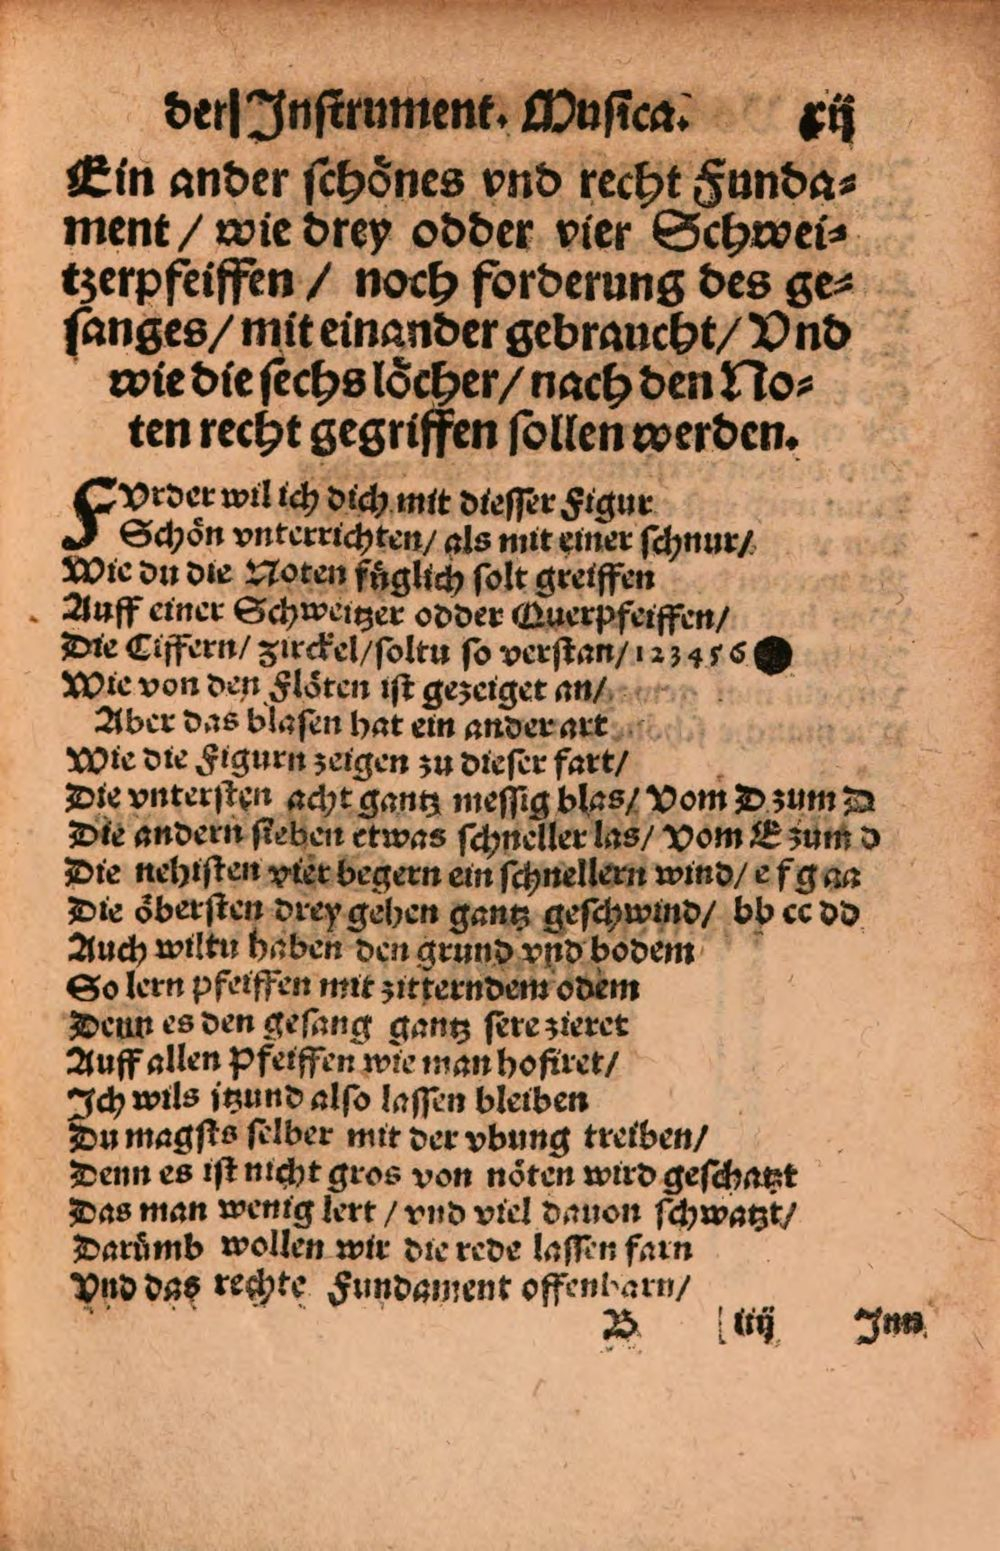 der Inſtrument. Muſica. xij
Ein ander ſchoͤnes vnd recht Funda⸗
ment / wie drey odder vier Schwei⸗
tzerpfeiffen / noch forderung des ge⸗
ſanges / mit einander gebraucht / Vnd
wie die ſechs loͤcher / nach den No⸗
ten recht gegriffen ſollen werden.
FVrder wil ich dich mit dieſſer Figur
Schoͤn vnterrichten / als mit einer ſchnur /
Wie du die Noten fuͤglich ſolt greiffen
Auff einer Schweitzer odder Querpfeiffen /
Die Ciffern / zirckel / ſoltu ſo verſtan / 1 2 3 4 5 6 ●
Wie von den Floͤten iſt gezeiget an /
Aber das blaſen hat ein ander art
Wie die Figurn zeigen zu dieſer fart /
Die vnterſten acht gantz meſſig blas / Vom D zum D
Die andern ſieben etwas ſchneller las / Vom E zum d
Die nehiſten vier begern ein ſchnellern wind / e f g aa
Die oͤberſten drey gehen gantz geſchwind / bb cc dd
Auch wiltu haben den grund vnd bodem
So lern pfeiffen mit zitterndem odem
Denn es den geſang gantz ſere zieret
Auff allen Pfeiffen wie man hofiret /
Ich wils itzund alſo laſſen bleiben
Du magſts ſelber mit der vbung treiben /
Denn es iſt nicht gros von noͤten wird geſchatzt
Das man wenig lert / vnd viel dauon ſchwatzt /
Daruͤmb wollen wir die rede laſſen farn
Vnd das rechte Fundament offenbarn /
B iiij Inn